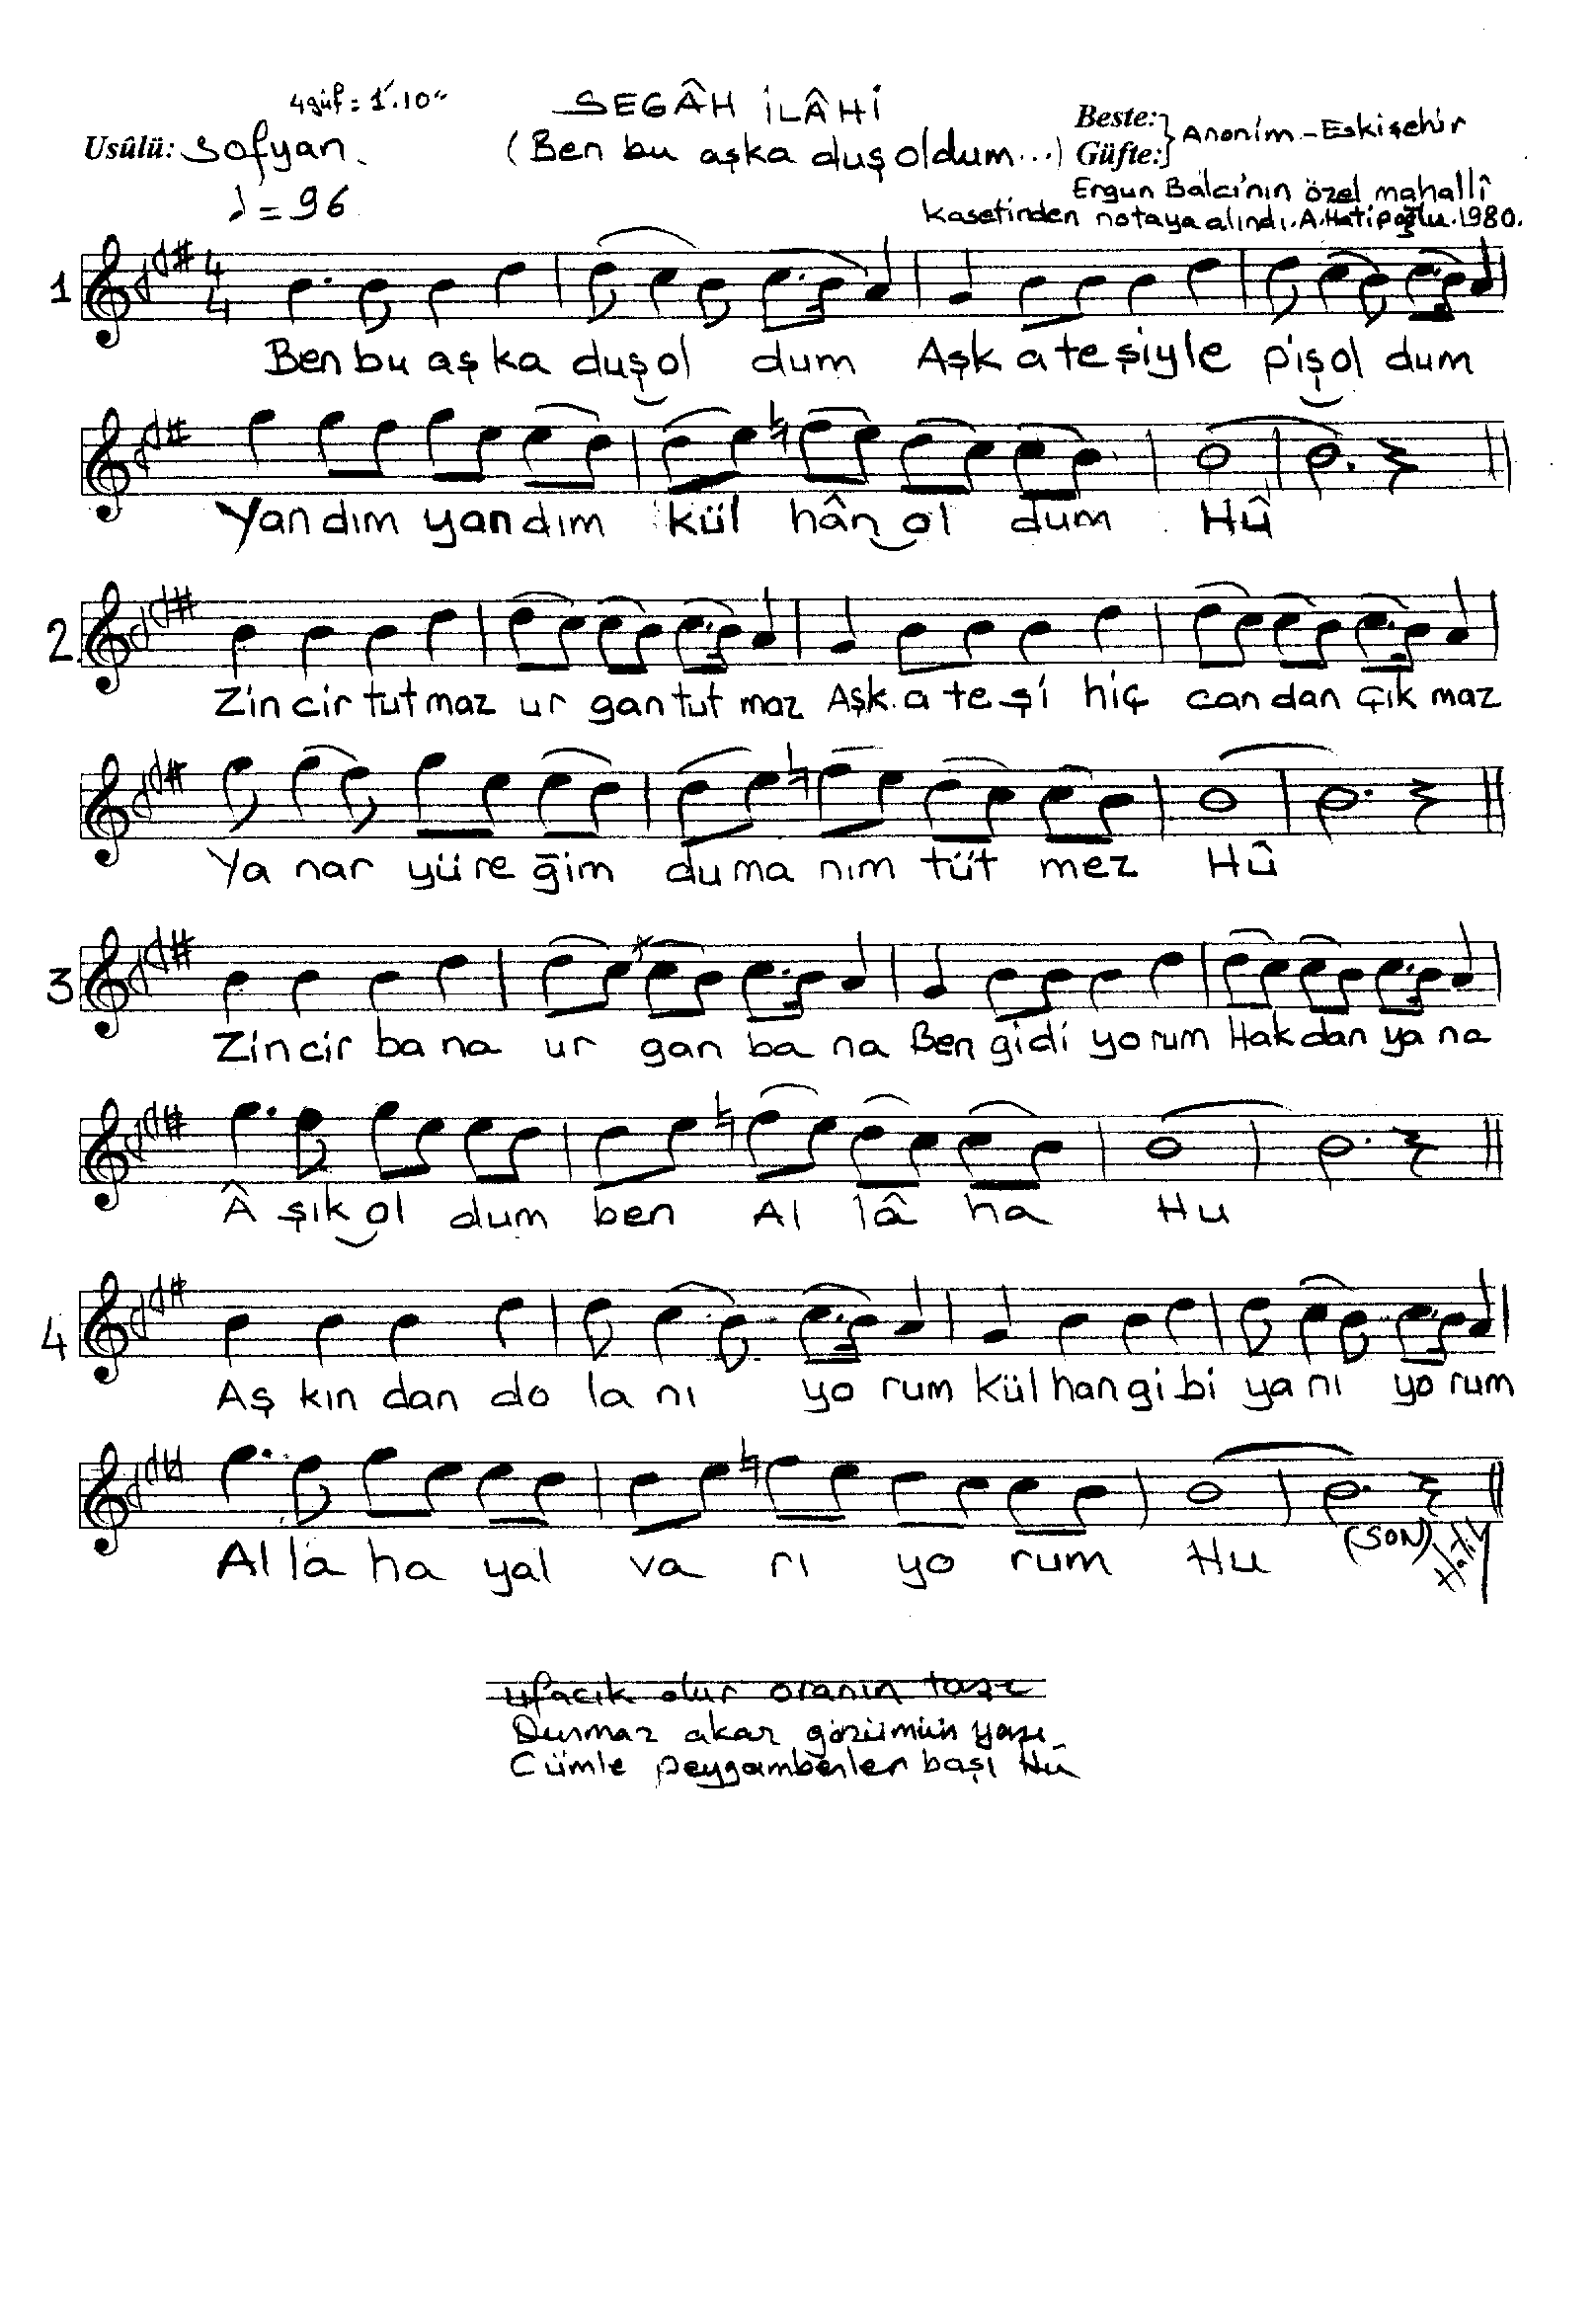 4 güf = 1'.10"
SEGÂH İLÂHİ
Usûlü: Sofyan.
(Ben bu aşka duş oldum...)
Beste: Güfte: } Anonim - Eskişehir
♩ = 96
Ergun Balcı'nın özel mahallî
kasetinden notaya alındı. A. Hatipoğlu. 1980.
1 4 4
Ben bu aş ka duş ol dum Aşk a te şiyle piş ol dum
Yan dım yan dım kül hân ol dum Hû
2
Zin cir tut maz ur gan tut maz Aşk a te şi hiç can dan çık maz
Ya nar yü re ğim du ma nım tüt mez Hû
3
Zin cir ba na ur gan ba na Ben gi di yo rum Hak dan ya na
 şık ol dum ben Al lâ ha Hu
4
Aş kın dan do la nı yo rum kül han gi bi ya nı yo rum
Al la ha yal va rı yo rum Hu (SON)
ufacık olur oranın taşı
Durmaz akar gözümün yaşı
Cümle peygamberler başı Hû